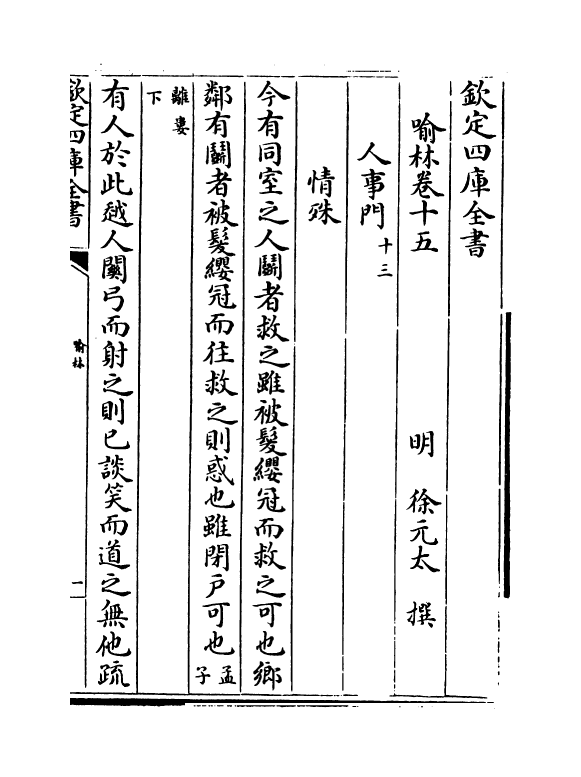 欽定四庫全書
喻林卷十五　　　　明　徐元太　撰
人事門十三
情殊
今有同室之人鬬者救之雖被髮纓冠而救之可也鄉
鄰有鬬者被髮纓冠而往救之則惑也雖閉戶可也孟子
離婁下
有人於此越人關弓而射之則已談笑而道之無他疏
欽定四庫全書
喻林